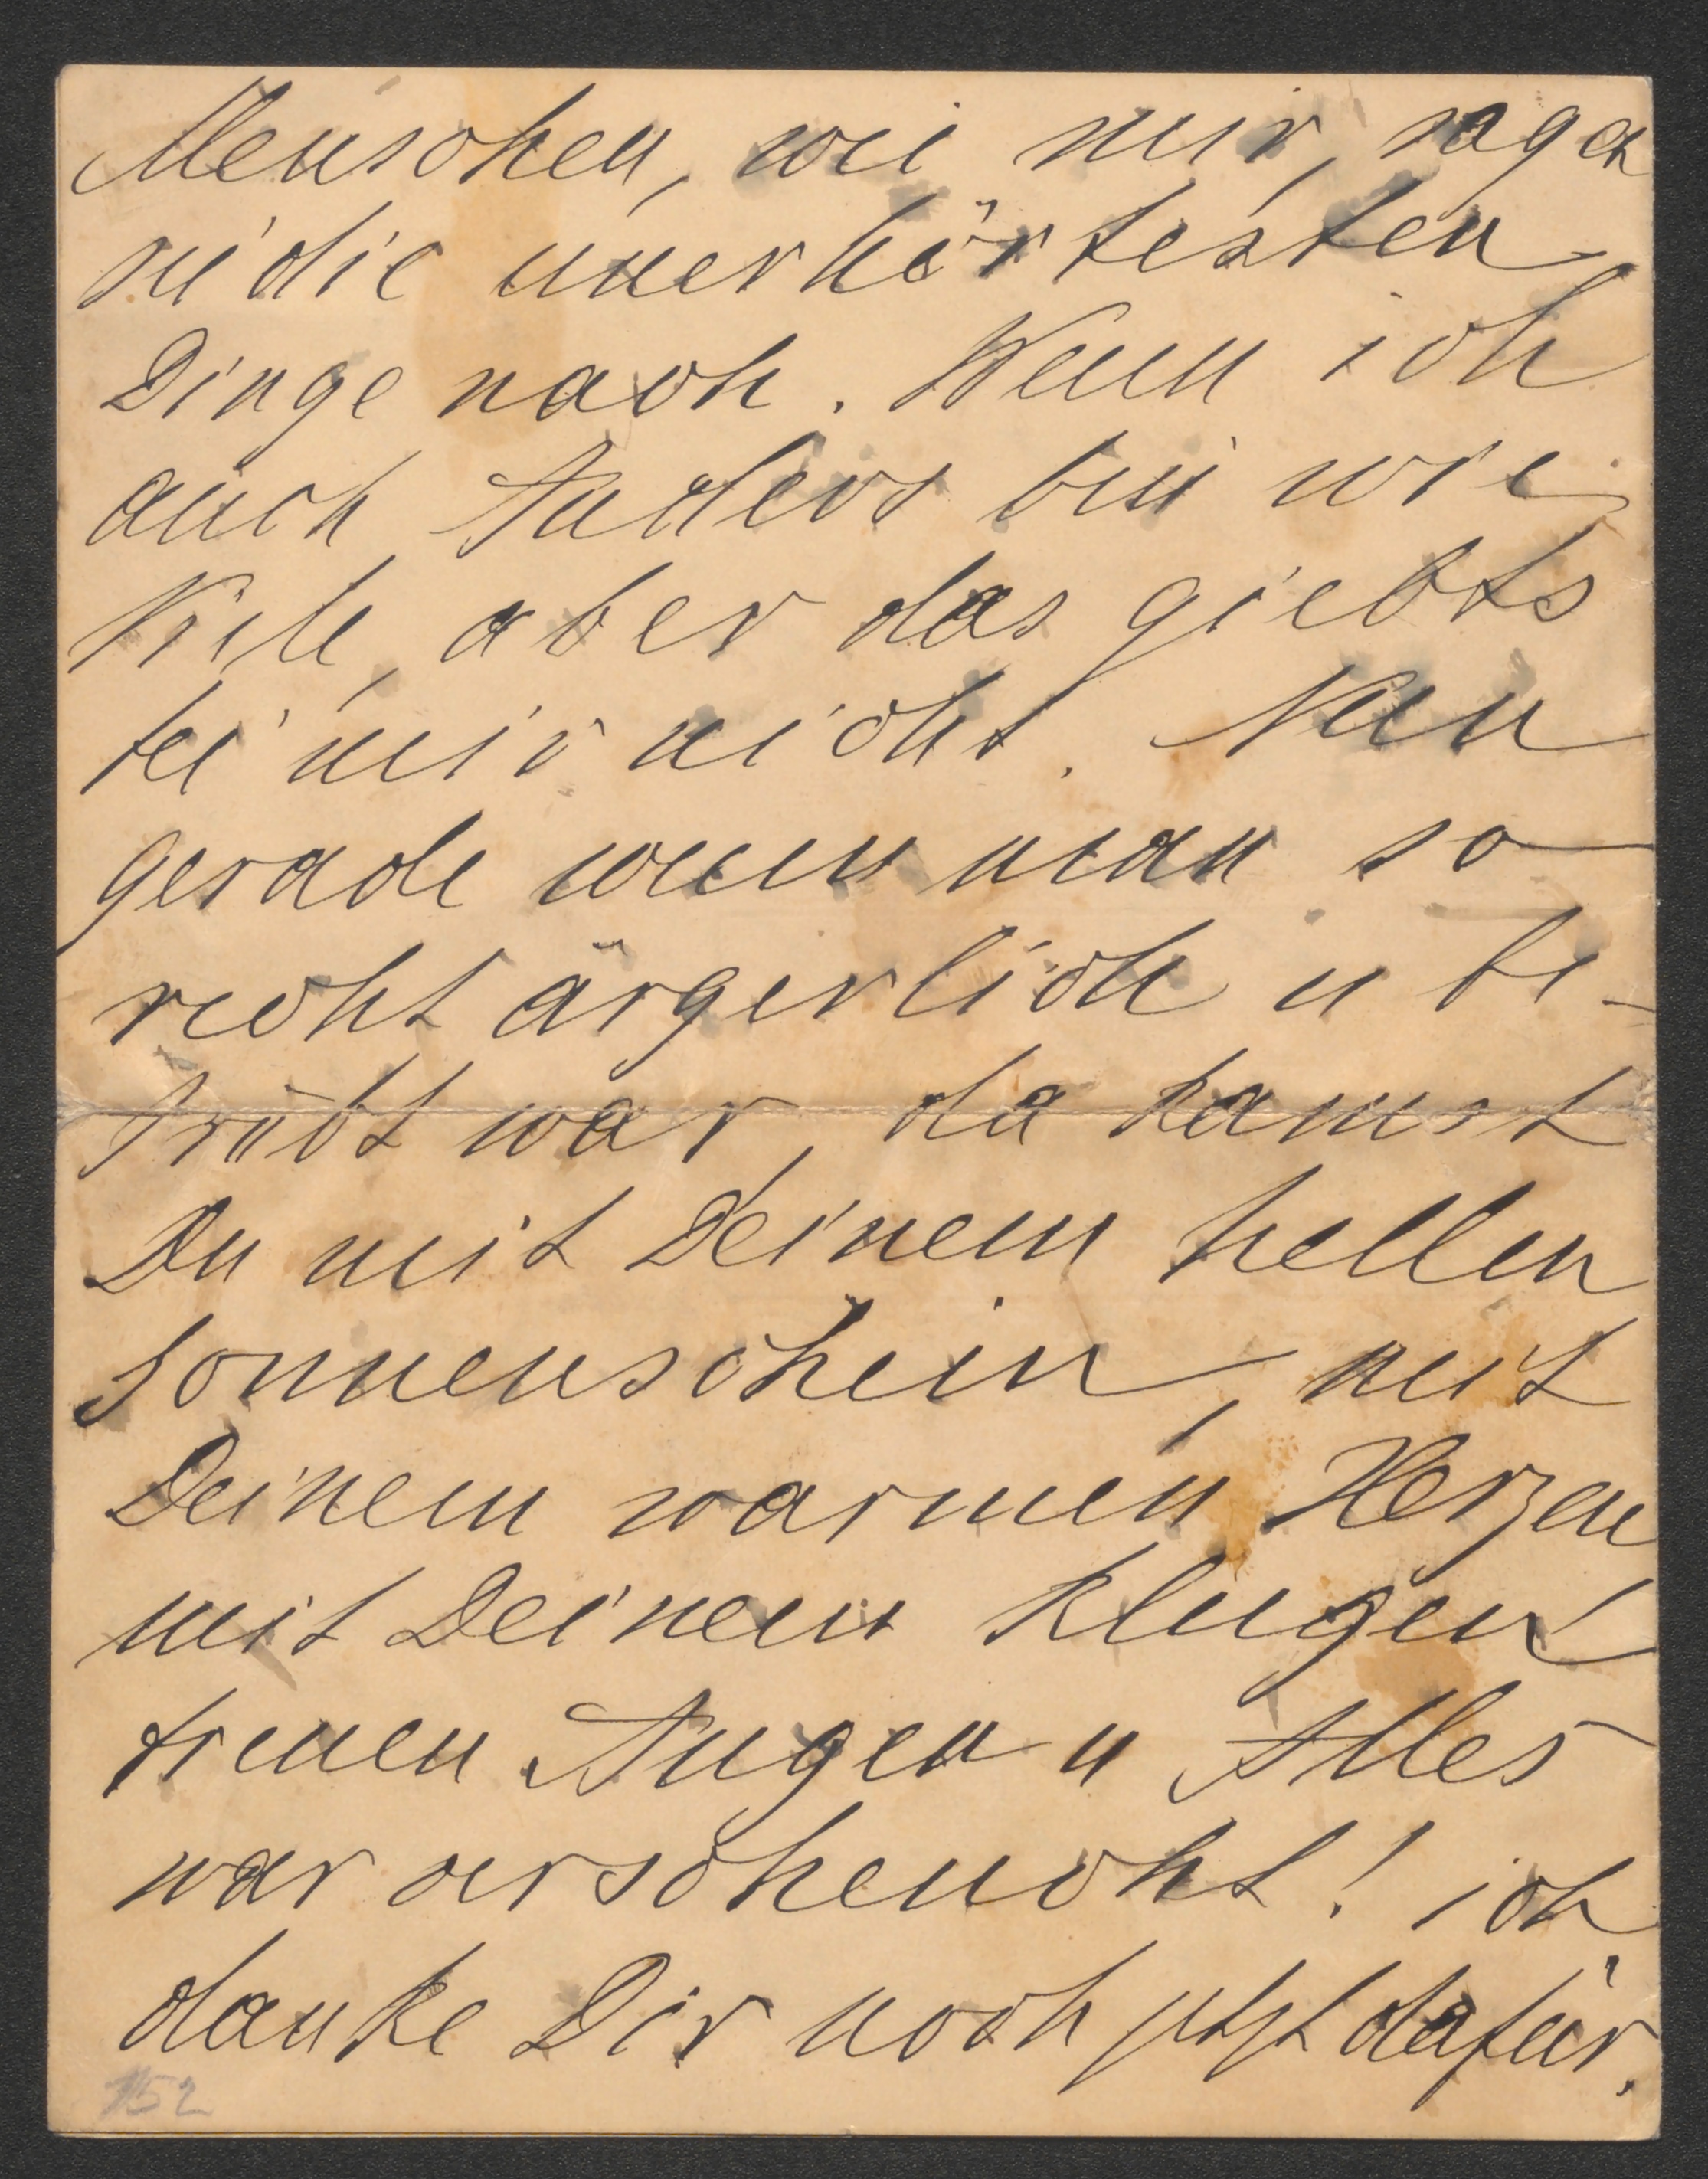 Menschen, wie mir, sagen
sie die unerhörtesten
Dinge nach. Wenn ich
auch Anders bin wie
Viele, aber das giebts
bei mir nicht. Nun
gerade wenn man so
recht ärgerlich u be-
trübt war, da kamst
Du mit Deinem hellen
Sonnenschein, mit
Deinem warmen Herzen
mit Deinem klugen
treuen Augen u Alles
war verscheucht! ich
danke Dir noch jetzt dafür.
152